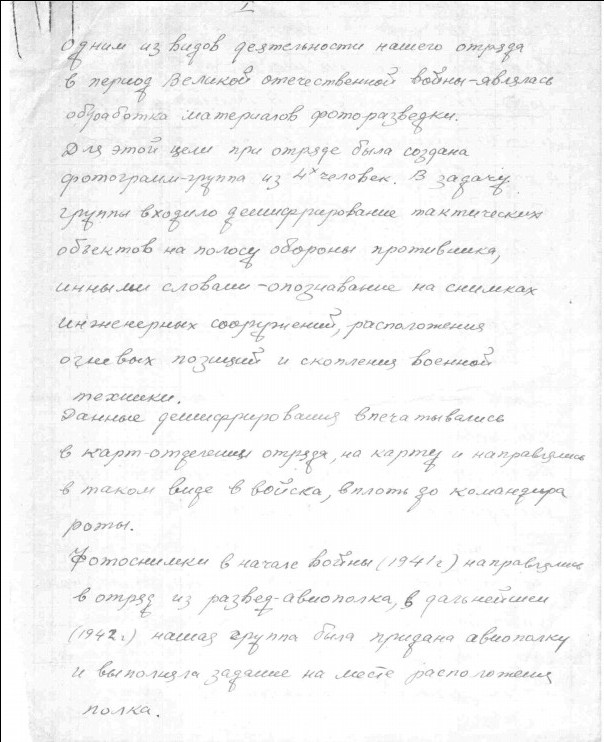 1
Одним из видов деятельности нашего отряда
в период Великой отечественной войны-являлась
обработка материалов фоторазведки.
Для этой цели при отряде была создана
фотограмм-группа из 4х человек. В задачу
группы входило дешифрирование тактических
объектов на полосу обороны противника,
инными словами-опознавание на снимках
инженерных сооружений, расположения
огневых позиций и скопления военной
техники.
Данные дешифрирования впечатывались
в карт-отделении отряда, на карту и направлялись
в таком виде в войска, вплоть до командира
роты.
Фотоснимки в начале войны (1941г) направлялись
в отряд из развед-авиополка, в дальнейшем
(1942г) нашая группа была придана авиополку
и выполняла задание на месте расположения
полка.